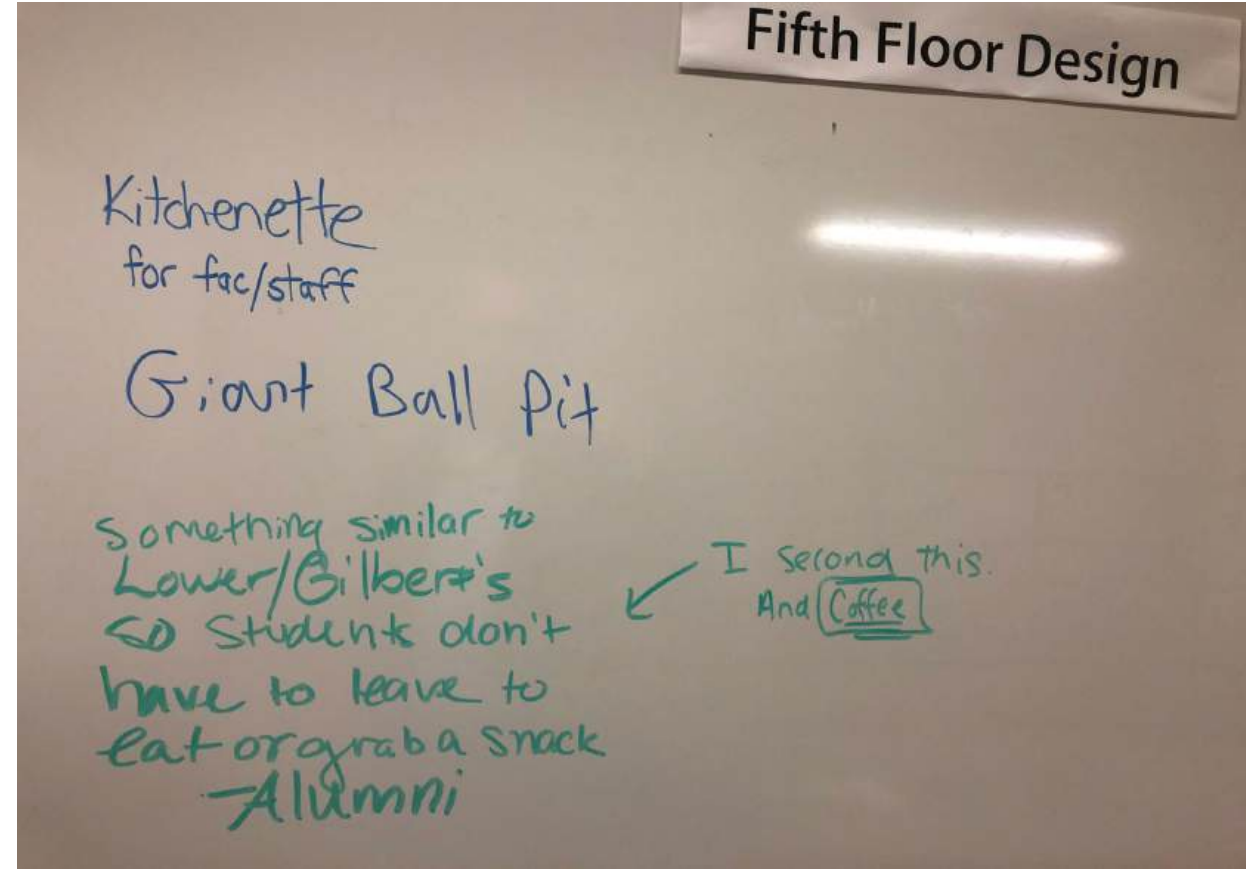 Fifth Floor Design
Kitchenette
for fac/staff
Giant Ball Pit
Something similar to
Lower/Gilbert's
so Students don't
have to leave to
eat or grab a snack
-Alumni
I second this.
And Coffee